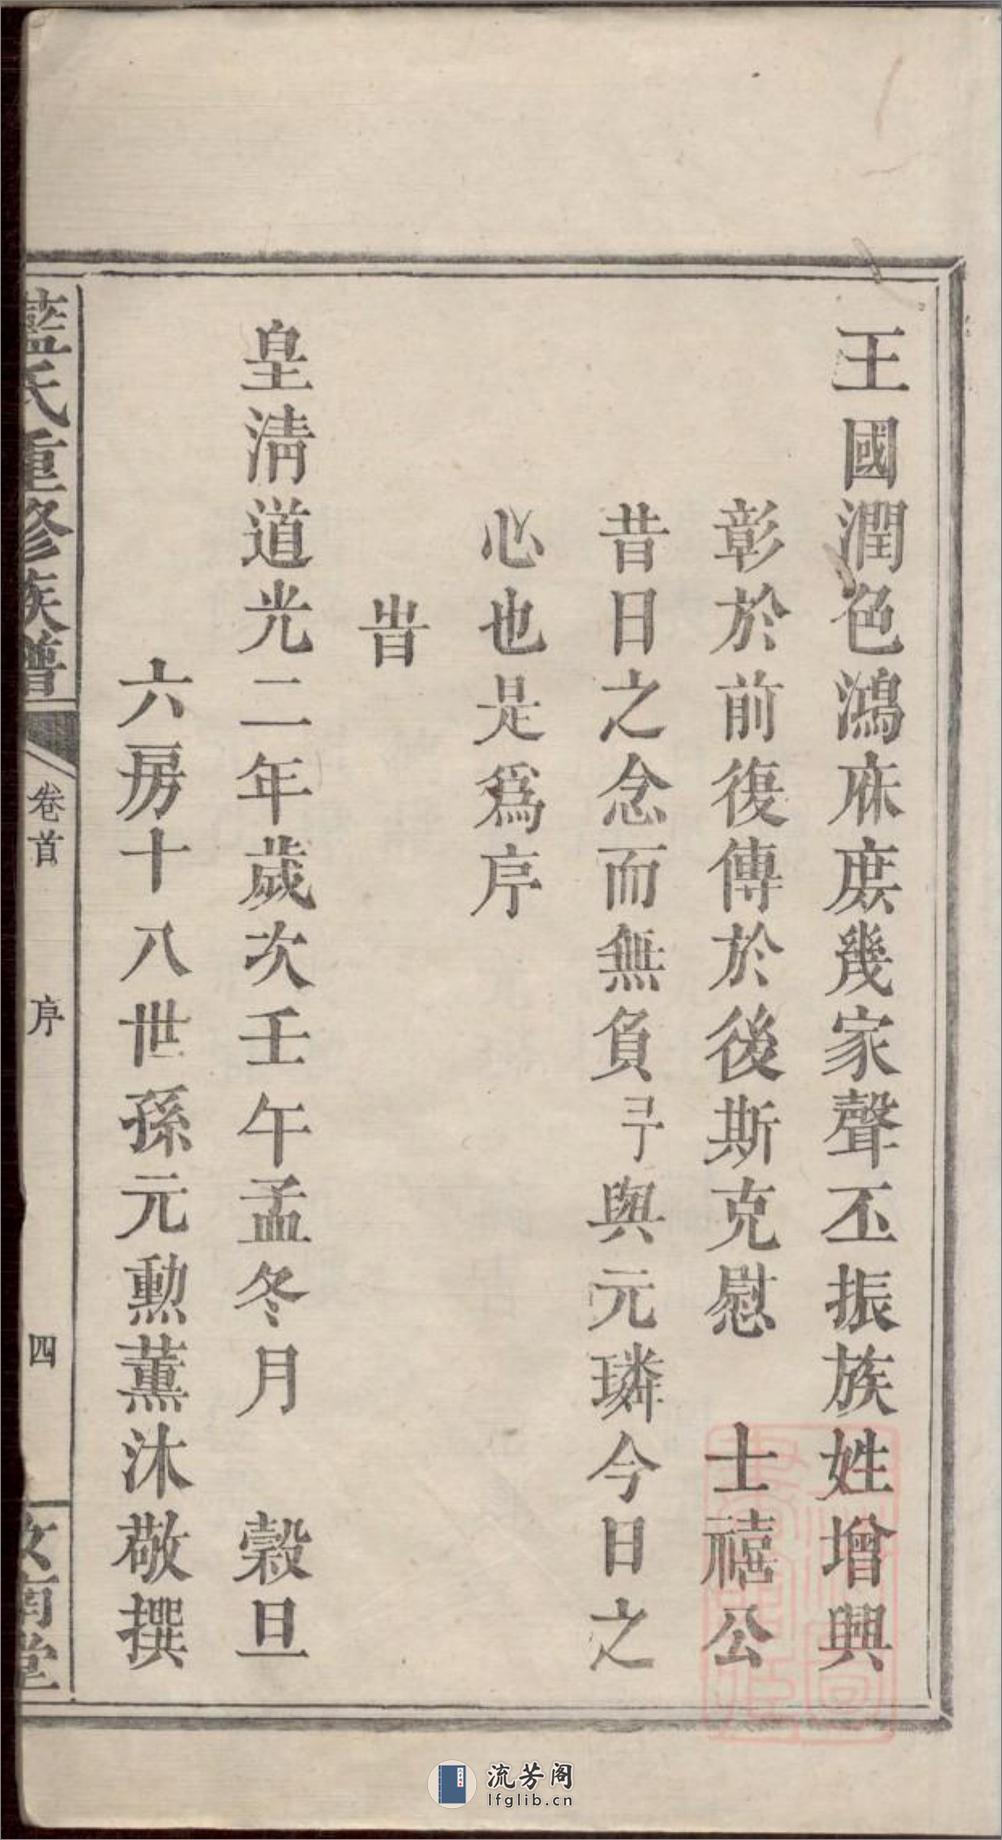 王國潤色鴻庥庶幾家聲丕振族姓增興
彰於前復傳於後斯克慰　士禧公
昔日之念而無負予與元璘今日之
心也是爲序
旹
皇清道光二年歲次壬午孟冬月　穀旦
六房十八世孫元勲薰沐敬撰
藍氏重修族譜　卷首　序　四　汝南堂
流芳阁
lfglib.cn